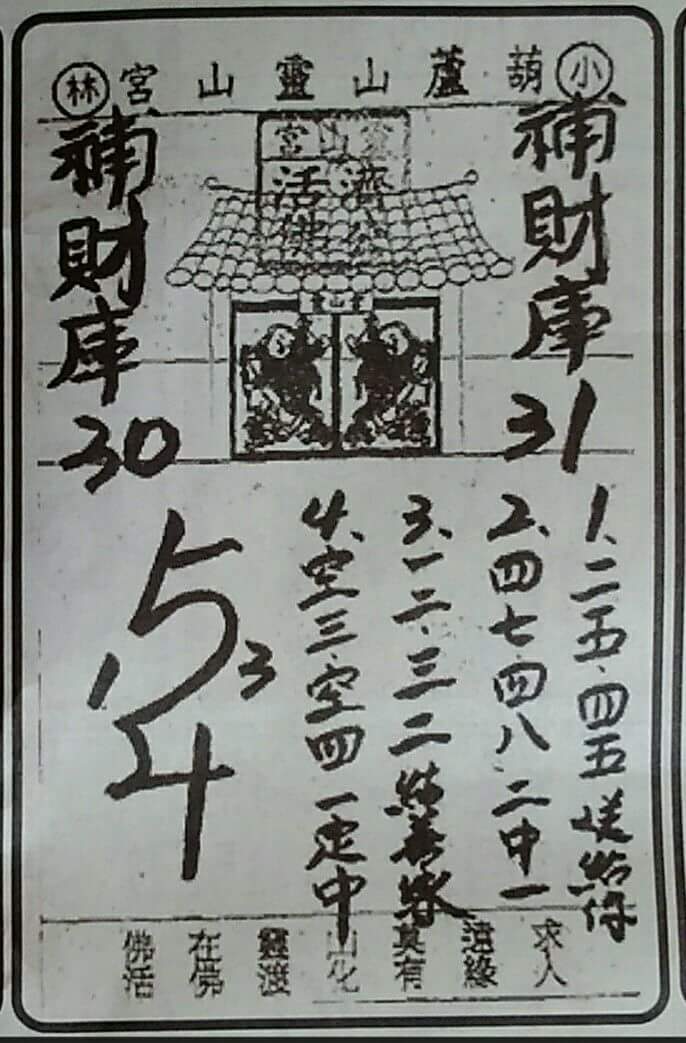 小葫蘆山靈山宮林
靈山宮
濟公
活佛
靈山宮
補財庫
31
1、二五、四五送給你
2、四七、四八二中一
3、一二、三二結善緣
4、空三、空四一定中
補財庫
30
5
1 3
4
佛在靈山莫遠求
活佛渡化有緣人